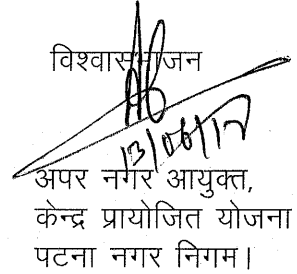 विश्वासभाजन
13/06/17
अपर नगर आयुक्त,
केन्द्र प्रायोजित योजना
पटना नगर निगम।